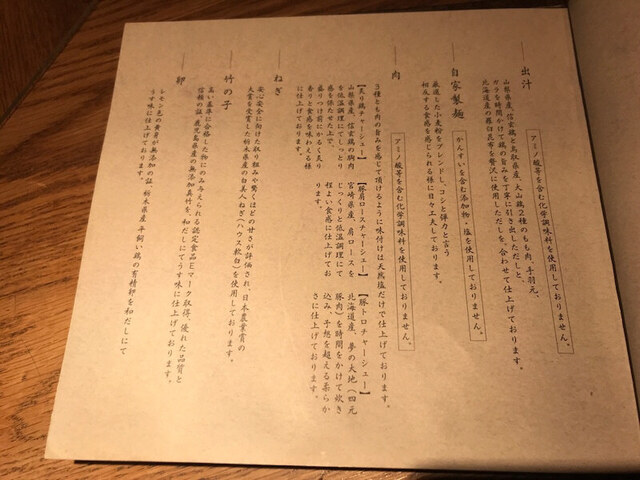 出汁
アミノ酸等を含む化学調味料を使用しておりません。
山梨県産、信玄鶏と鳥取県産、大山鶏2種のもも肉、手羽元、
ガラを時間かけて鶏の旨みを丁寧に引き出しただしと、
北海道産の真昆布等を贅沢に使用しただしを、合わせて仕上げております。
自家製麺
かんすいを含む添加物・塩を使用しておりません。
厳選した小麦粉をブレンドし、コシと弾力と言う
相反する食感を感じられる様に日々工夫しております。
肉
アミノ酸等を含む化学調味料を使用しておりません。
3種とも肉の旨みを感じて頂けるように味付けは天然塩だけで仕上げております。
【炙り鶏チャーシュー】
山梨県産、信玄鶏の胸肉
を低温調理にてしっとり
感を保たせた上で、
盛りつけ前にかるく炙り
香りと食感を味わえる様
に仕上げております。
【豚肩ロースチャーシュー】
宮崎県産、肩ロースを
じっくりと低温調理にて
程よい食感に仕上げてお
ります。
【豚トロチャーシュー】
北海道産、夢の大地(四元
豚肉)を時間をかけて炊き
込み、予想を超える柔らか
さに仕上げております。
ねぎ
安心安全に向けた取り組みや驚くほどの甘さが評価され、日本農業賞の
大賞を受賞した栃木県産の白美人ねぎ(ハウス軟白)を使用しております。
竹の子
高い基準に合格した物にのみ与えられる認定食品Eマーク取得、優れた品質と
信頼の証、鹿児島県産の無添加真竹を、和だしにてうす味に仕上げております。
卵
レモン色の黄身が無添加の証、栃木県産平飼い鶏の有精卵を和だしにて
うす味に仕上げております。